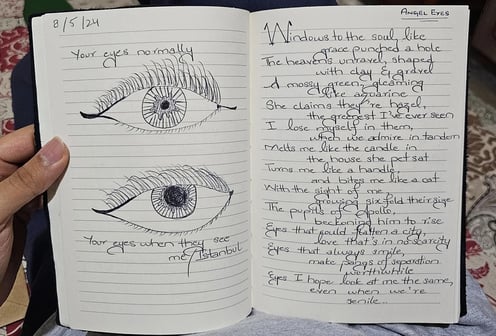 8/5/24
Your eyes normally
Your eyes when they see
me / Istanbul
ANGEL EYES
Windows to the soul, like
grace punched a hole
The heavens unravel, shaped
with clay & gravel
A mossy green, gleaming
like aquarine
She claims they're hazel,
the greenest I've ever seen
I lose myself in them,
when we admire in tandem
Melts me like the candle in
the house she pet sat
Turns me like a handle,
and bites me like a cat
With the sight of me,
growing sixfold their size
The pupils of Apollo,
beckoning him to rise
Eyes that could flatten a city,
love that's in no scarcity
Eyes that always smile,
make pangs of separation
worthwhile
Eyes I hope look at me the same,
even when we're
senile..